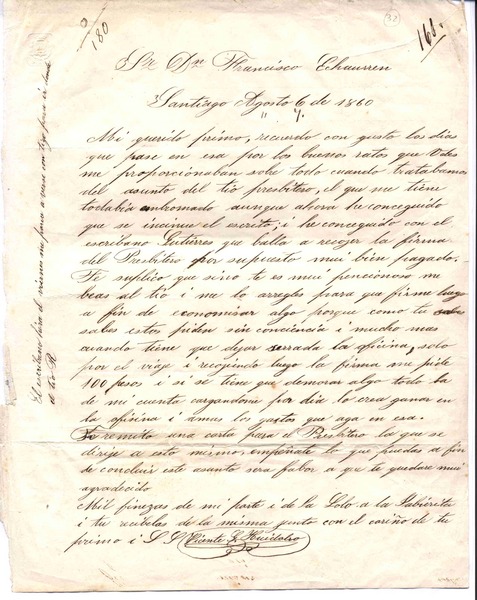 32
168.
180
Sr Dn Francisco Echaurren
Santiago Agosto 6 de 1860
" 7.
Mi querido primo, recuerdo con gusto los dias
que pase en esa por los buenos ratos que Vdes
me proporcionaban sobre todo cuando tratabamos
del asunto del tio presbitero, el que me tiene
todabia embromado aunque ahora he conseguido
que se incinue el escrito; i he conseguido con el
escribano Gutierres que balla a recojer la firma
del Presbitero por supuesto mui bien pagado.
Te suplico que sino te es mui pencionoso me
beas al tio i me lo arregles para que firme luego
a fin de economisar algo porque como tu sabes
sabes estos piden sin conciencia i mucho mas
cuando tiene que dejar serrada la oficina, solo
por el viaje i recojiendo luego la firma me pide
100 pesos i si se tiene que demorar algo todo ba
de mi cuenta cargandome por dia lo crea ganar en
la oficina i amas los gastos que aga en esa.
Te remito una carta para el Presbitero la que se
dirije a esto mismo, empeñate lo que puedas a fin
de concluir este asunto sera fabor a que te quedare mui
agradecido
Mil finezas de mi parte i de la Lolo a la Jabierita
i tu recibelas de la misma junto con el cariño de tu
primo i S. S. Vicente G. Huidobro
El escribano dira el mismo me para a verse con tigo para ir donde
el tio R